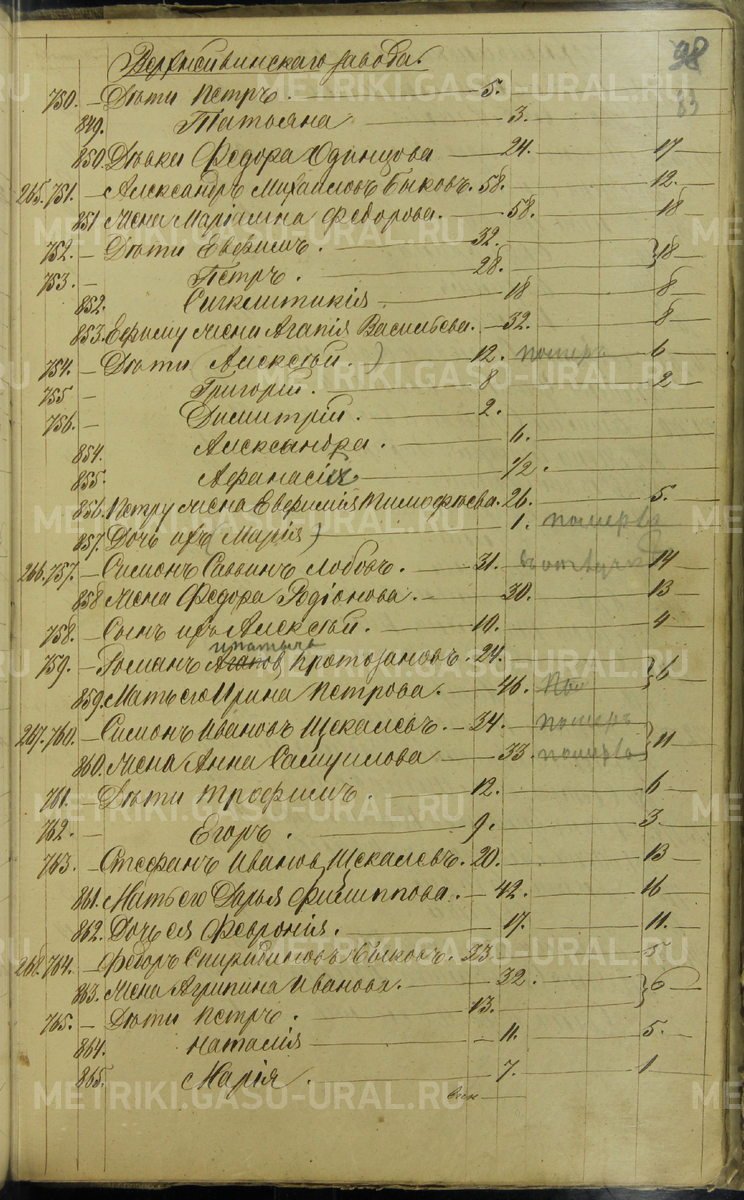 98
83
Верхнсивинскаго завода.
750. — Дѣти Петръ. — 5.
849. Татьяна — 3.
850. Дѣвки Федора Одинцова — 24. — 17
265. 751. — Александръ Михаиловъ Быковъ. 58. — 12.
851 Жена Маріамна Федорова. — 58. — 18
752. — Дѣти Евфимъ. — 32. } 18
753. — Петръ. — 28.
852. Сигклитикія — 18 — 8
853. Ефиму жена Агапія Васильева. — 32. — 8
754. — Дѣти Алексѣй. ) — 12. померъ — 6
755 — Григорій. — 8 — 2
756. — Димитрій. — 2.
854. Александра. — 6.
855. Афанасія — 1/2.
856. Петру жена Евфимія Тимофѣева. 26. — 5.
857. Дочь ихъ ( Марія ) — 1. померла
266. 757. — Симонъ Саввинъ Лобовъ. — 31. — 14
858 Жена Федора Родіонова. — 30. — 13
758. — Сынъ ихъ Алексѣй. — 10. — 4
ипатычъ
759. — Романъ Агановъ Протозановъ. 24. } 6
859. Мать его Ирина Петрова. — 46.
267. 760. — Симонъ Ивановъ Щекалевъ. — 34. — померъ } 11
860. Жена Анна Самуилова — 33. померла
761. — Дѣти Трофимъ. — 12. — 6
762. — Егоръ. — 9. — 3.
763. — Стефанъ Ивановъ Щекалевъ. 20. — 13
861. Мать его Дарья Филиппова. — 42. — 16
862. Дочь ея Февронія. — 17. — 11.
268. 764. — Федоръ Спиридоновъ Быковъ. 33 — 5
863. Жена Агрипина Иванова. — 32. } 6
765. — Дѣти Петръ. — 13.
864. Наталія — 11. — 5.
865. Марія. — 7. — 1
METRIKI.GASO-URAL.RU